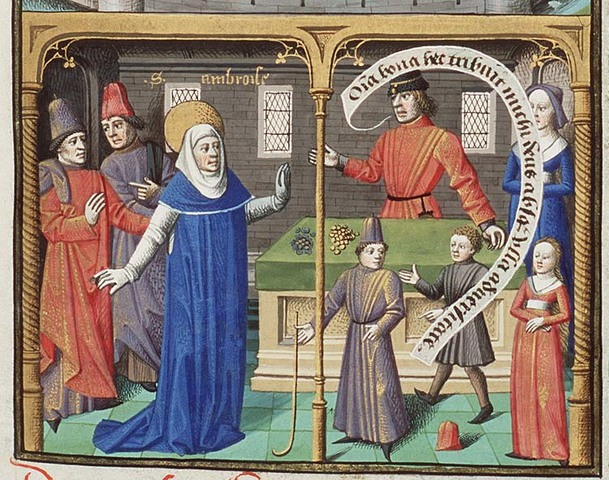 S. ambroise
Oīa bona hec tribuit michi deus absqꝫ ulla adversitate